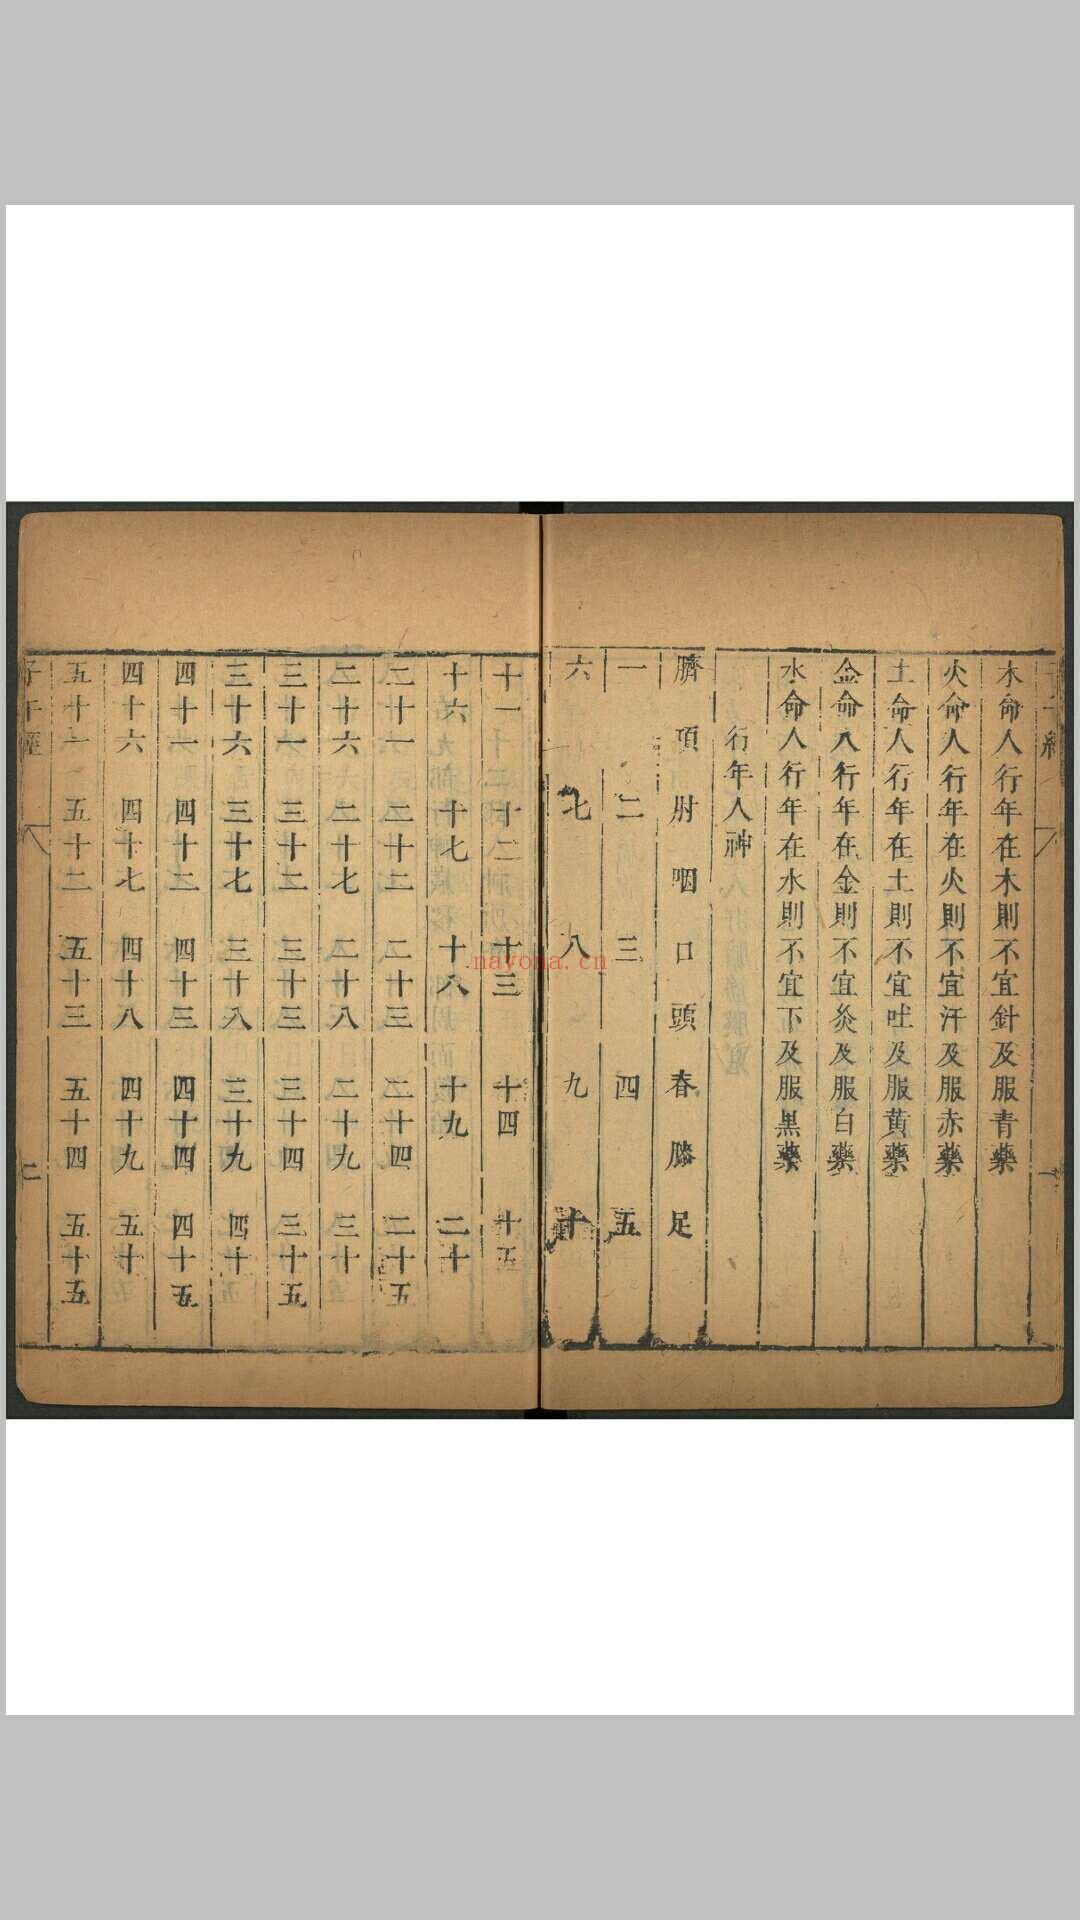 木命人行年在木則不宜針及服青藥
火命人行年在火則不宜汗及服赤藥
土命人行年在土則不宜吐及服黃藥
金命人行年在金則不宜灸及服白藥
水命人行年在水則不宜下及服黑藥
行年人神
臍項肘咽口頭春膝足
一 二 三 四 五
六 七 八 九 十
十一 十二 十三 十四 十五
十六 十七 十八 十九 二十
二十一 二十二 二十三 二十四 二十五
二十六 二十七 二十八 二十九 三十
三十一 三十二 三十三 三十四 三十五
三十六 三十七 三十八 三十九 四十
四十一 四十二 四十三 四十四 四十五
四十六 四十七 四十八 四十九 五十
五十一 五十二 五十三 五十四 五十五
子午經 二
nayona.cn